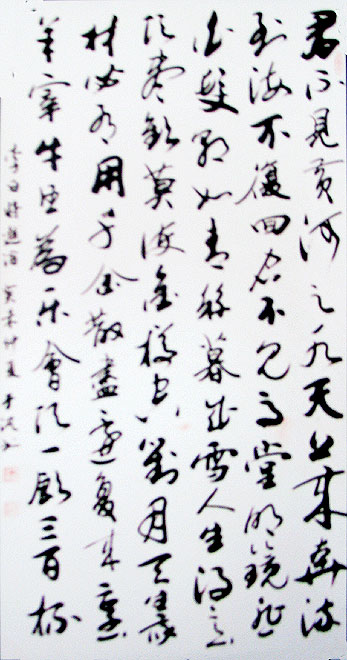 君不見黃河之水天上来奔流
到海不復回君不見高堂明鏡悲
白髮朝如青絲暮成雪人生得意
須盡歡莫使金樽空對月天生我
材必有用千金散盡還復来烹
羊宰牛且為樂會須一飲三百杯
李白將進酒